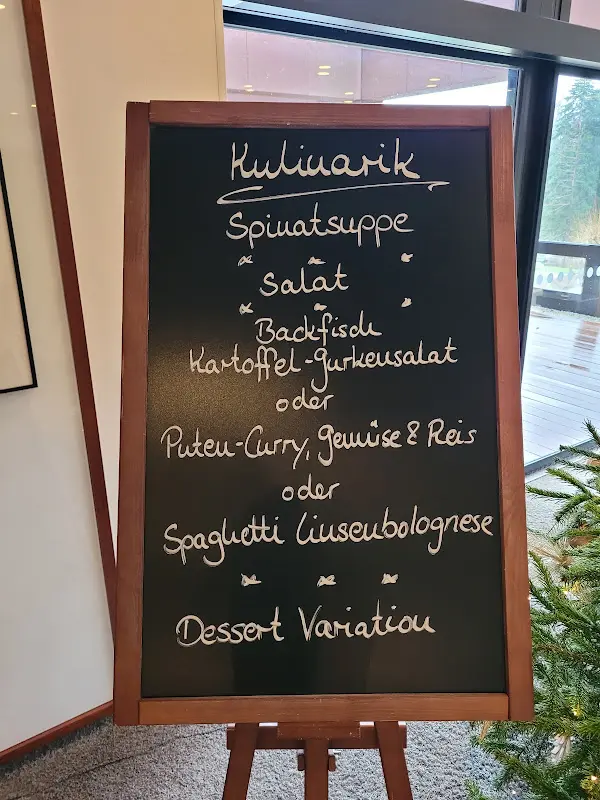 Kulinarik
Spinatsuppe
Salat
Backfisch
Kartoffel-Gurkensalat
oder
Puten-Curry, Gemüse & Reis
oder
Spaghetti Linsenbolognese
Dessert Variation